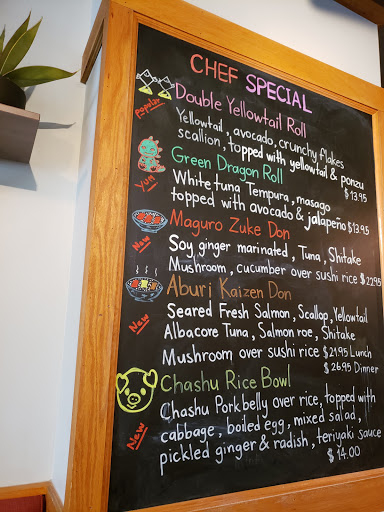 CHEF SPECIAL
popular
Double Yellowtail Roll
Yellowtail, avocado, crunchy flakes
scallion, topped with yellowtail & ponzu
$13.95
Green Dragon Roll
Yum
White tuna Tempura, masago
topped with avocado & jalapeño $13.95
Maguro Zuke Don
New
Soy, ginger marinated, Tuna, Shitake
Mushroom, cucumber over sushi rice $22.95
Aburi Kaizen Don
Seared Fresh Salmon, Scallop, Yellowtail
New
Albacore Tuna, Salmon roe, Shitake
Mushroom over sushi rice $21.95 Lunch
$26.95 Dinner
Chashu Rice Bowl
Chashu Porkbelly over rice, topped with
New
cabbage, boiled egg, mixed salad,
pickled ginger & radish, teriyaki sauce
$14.00